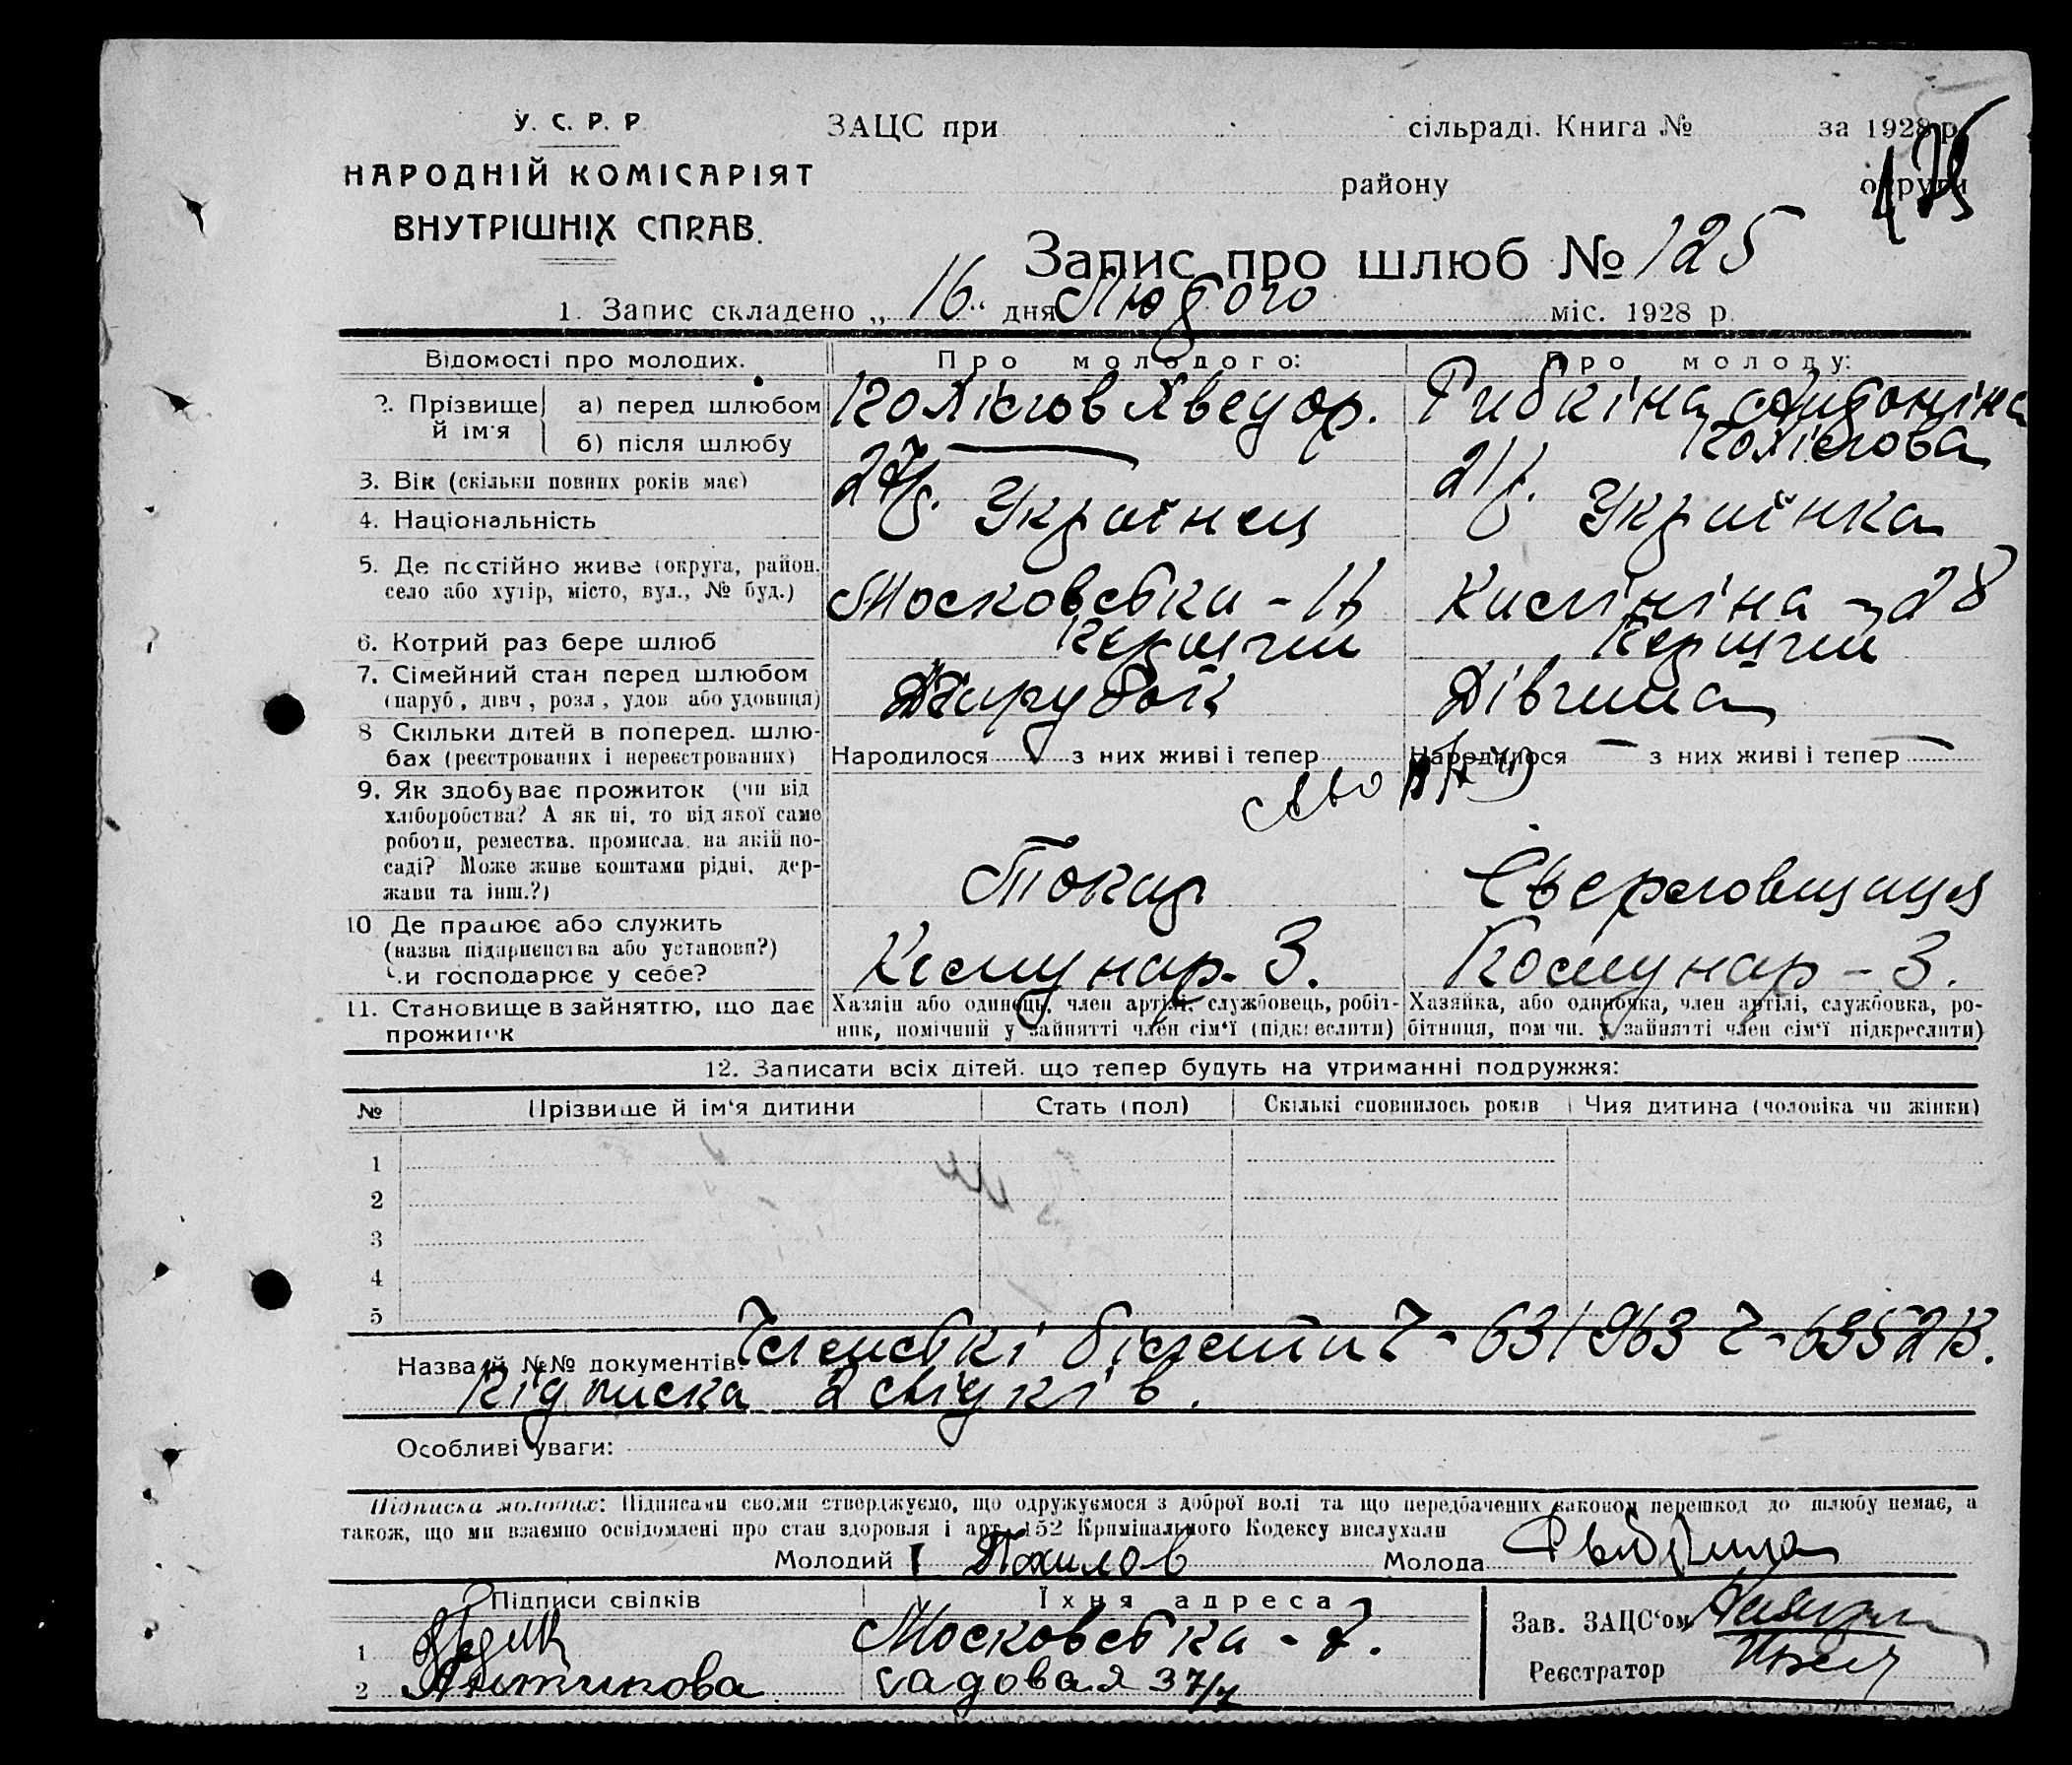 У. С. Р. Р.
НАРОДНІЙ КОМІСАРІЯТ
ВНУТРІШНІХ СПРАВ.
ЗАЦС при сільраді. Книга № за 1928 р.
району округи
125
Запис про шлюб № 125
1. Запис складено „ 16 “ дня Лютого міс. 1928 р.
Відомості про молодих. Про молодого: Про молоду:
2. Прізвище й ім'я
а) перед шлюбом Рибкіна
б) після шлюбу
3. Вік (скільки повних років має) 27 21
4. Національність Українец Українка
5. Де постійно живе (округа, район, село або хутір, місто, вул., № буд.) Московська - 28
6. Котрий раз бере шлюб Перший Перший
7. Сімейний стан перед шлюбом (паруб, дівч, розл, удов. або удовиця) Парубок Дівчина
8 Скільки дітей в поперед. шлюбах (реєстрованих і нереєстрованих) Народилося з них живі і тепер Народилося — з них живі і тепер —
9. Як здобуває прожиток (чи від хліборобства? А як ні, то від якої саме роботи, ремества, промисла, на якій посаді? Може живе коштами рідні, держави та інш.?) Токар
10 Де працює або служить (назва підприємства або установи?) Чи господарює у себе? Комунар - 3. Комунар - 3.
11. Становище в зайняттю, що дає прожиток
Хазяін або одинець, член артілі, службовець, робітник, помічний у зайнятті член сім'ї (підкреслити)
Хазяйка, або одиночка, член артілі, службовка, робітниця, помічн. у зайнятті член сім'ї підкреслити)
12. Записати всіх дітей, що тепер будуть на утриманні подружжя:
№ Прізвище й ім'я дитини Стать (пол) Скількі сповнилось років Чия дитина (чоловіка чи жінки)
1
2
3
4
5
Назва й №№ документів: Членські білети
Підписка 2 свідків.
Особливі уваги:
Підписка молодих: Підписами своїми стверджуємо, що одружуємося з доброї волі та що передбачених законом перешкод до шлюбу немає, а
також, що ми взаємно освідомлені про стан здоровля і арт. 152 Кримінального Кодексу вислухали
Молодий Молода
Підписи свідків Їхня адреса
1 Московська - 7.
2 садовая 37/7
Зав. ЗАЦС'ом
Реєстратор